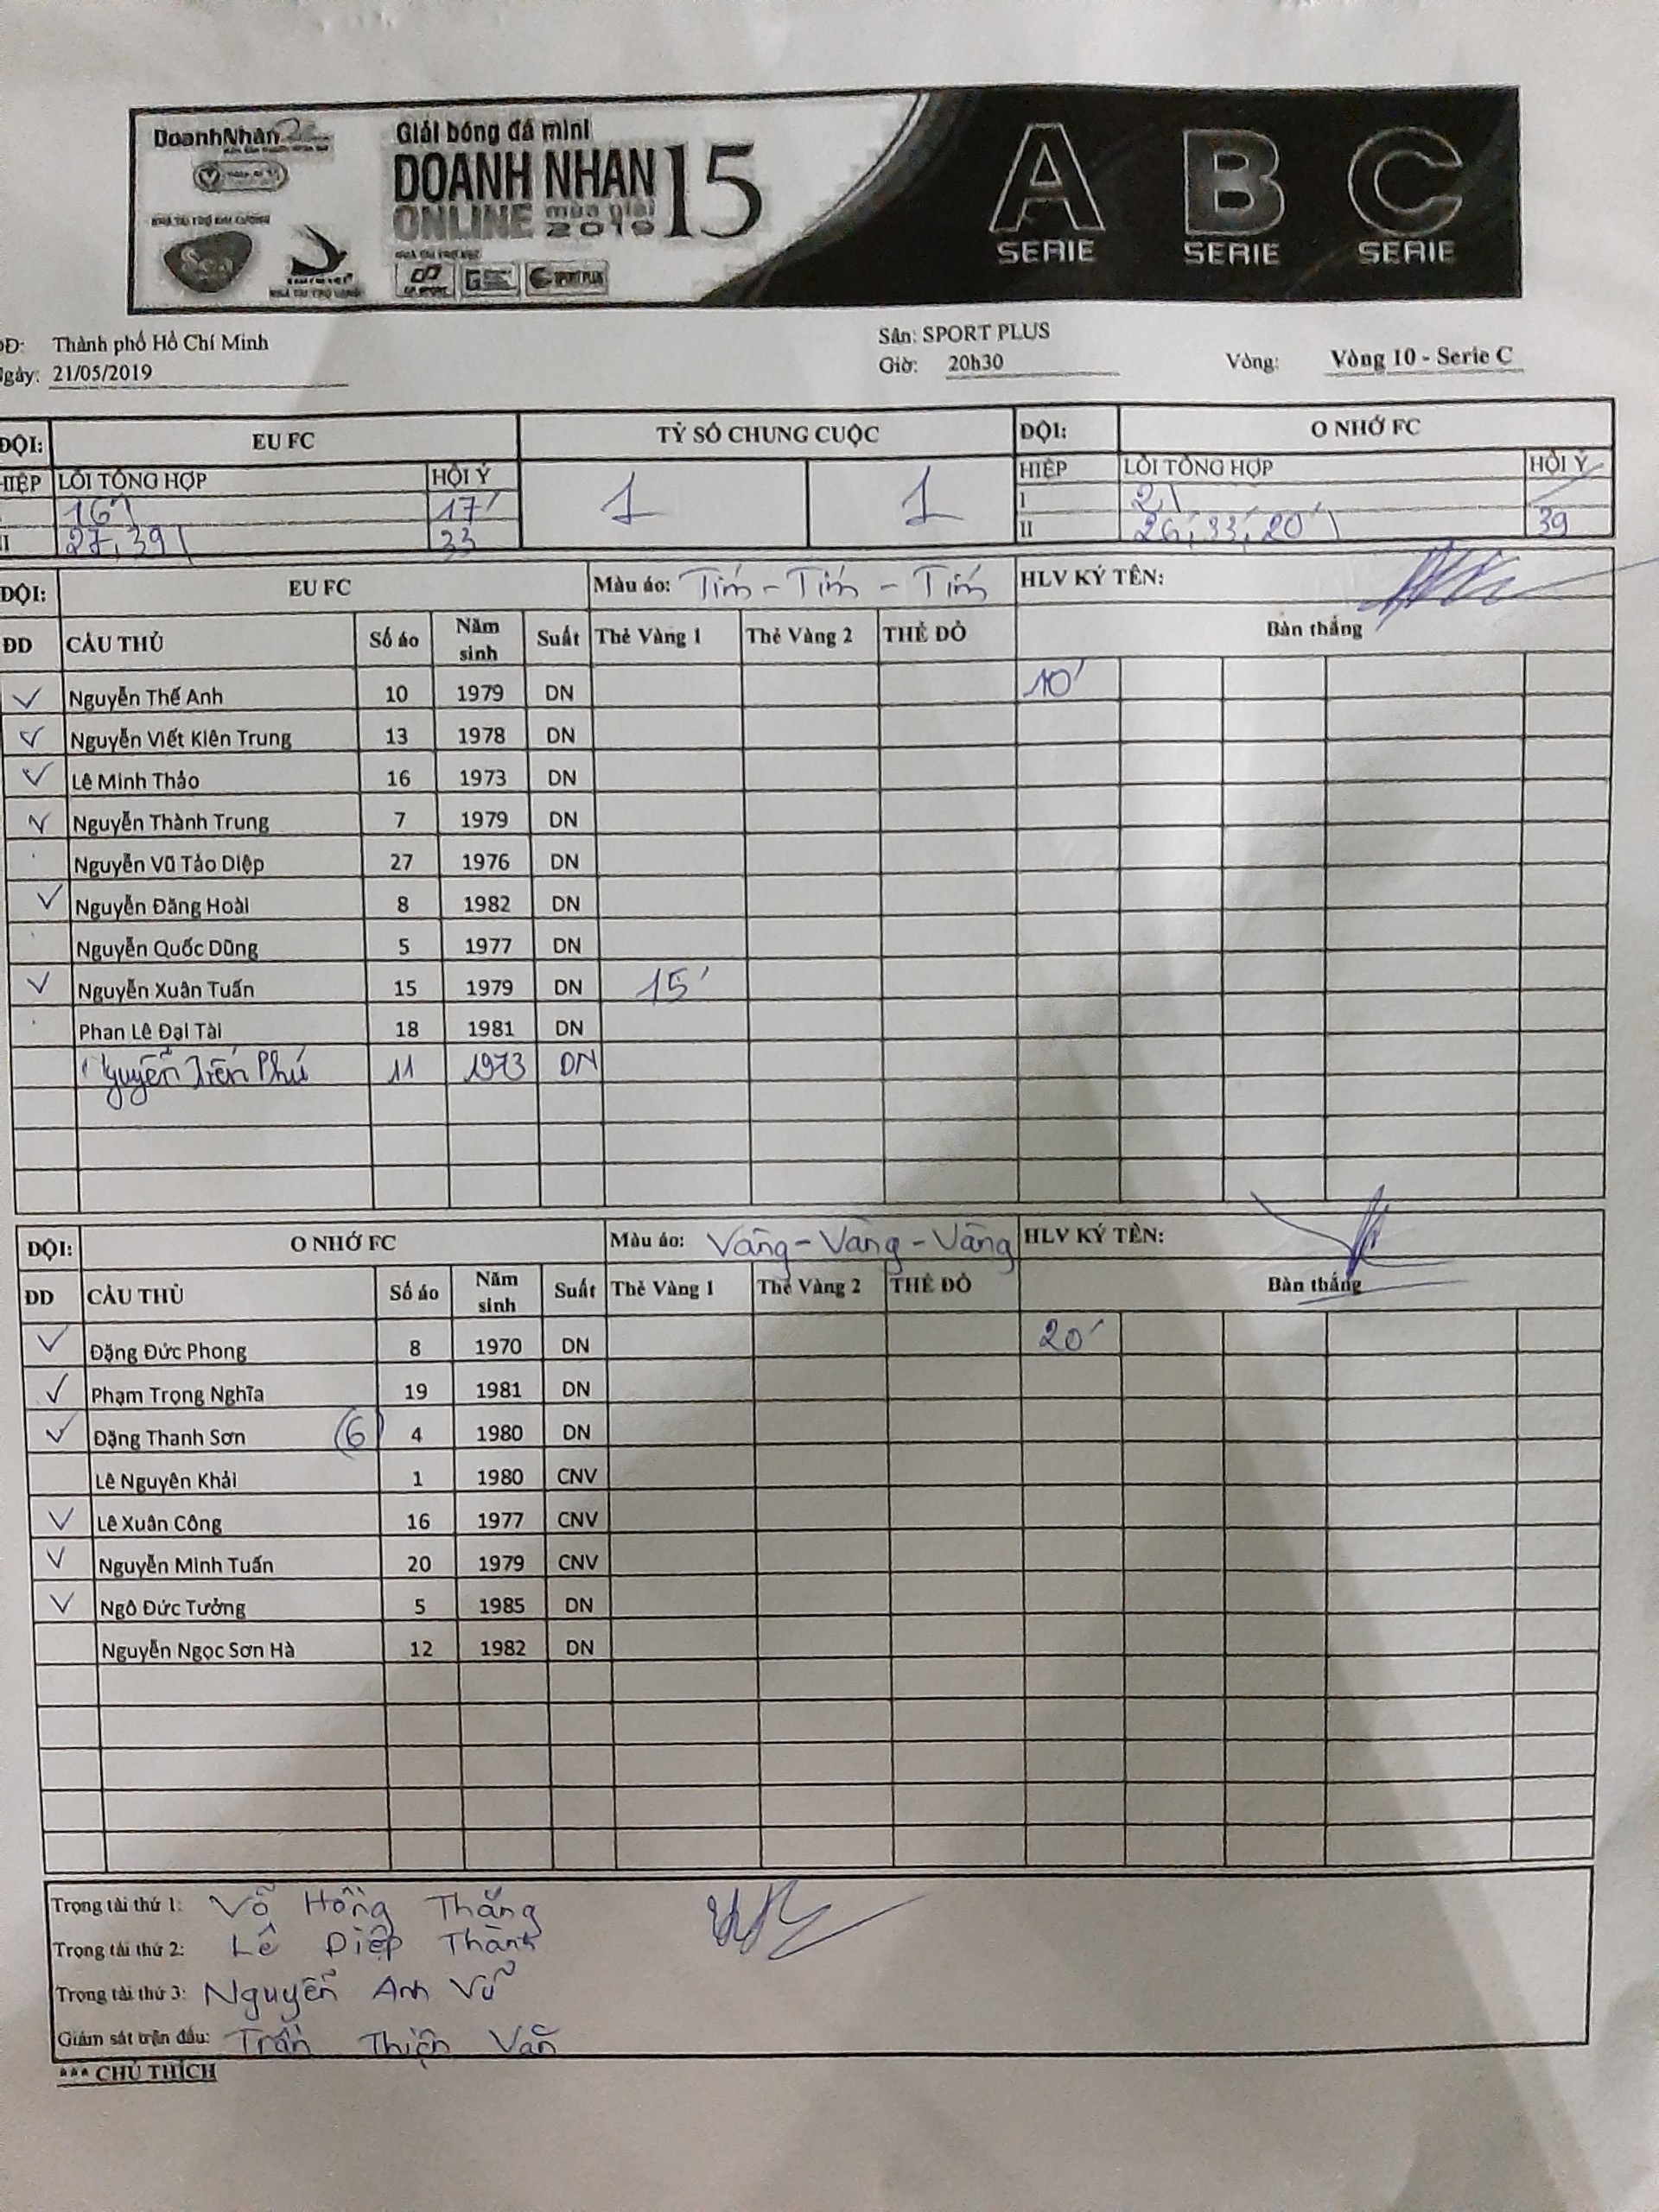 DoanhNhân
Giải bóng đá mini
DOANH NHAN
ONLINE mùa giải
2019
15
NHÀ TÀI TRỢ KIM CƯƠNG
NHÀ TÀI TRỢ VÀNG
SPORT PLUS
A SERIE B SERIE C SERIE
Thành phố Hồ Chí Minh Sân: SPORT PLUS
21/05/2019 Giờ: 20h30 Vòng: Vòng 10 - Serie C
ĐỘI: EU FC TỶ SỐ CHUNG CUỘC ĐỘI: O NHỚ FC
HIỆP LỖI TỔNG HỢP HỘI Ý 1 1 HIỆP LỖI TỔNG HỢP HỘI Ý
16' 17' I 2'
II 27, 39 33 II 26', 33', 20' 39
ĐỘI: EU FC Màu áo: Tím - Tím - Tím HLV KÝ TÊN:
ĐD CẦU THỦ Số áo Năm sinh Suất Thẻ Vàng 1 Thẻ Vàng 2 THẺ ĐỎ Bàn thắng
✓ Nguyễn Thế Anh 10 1979 DN 10'
✓ Nguyễn Viết Kiên Trung 13 1978 DN
✓ Lê Minh Thảo 16 1973 DN
✓ Nguyễn Thành Trung 7 1979 DN
Nguyễn Vũ Tảo Diệp 27 1976 DN
✓ Nguyễn Đăng Hoài 8 1982 DN
Nguyễn Quốc Dũng 5 1977 DN
✓ Nguyễn Xuân Tuấn 15 1979 DN 15'
Phan Lê Đại Tài 18 1981 DN
Nguyễn Phú 11 1973 DN
ĐỘI: O NHỚ FC Màu áo: Vàng - Vàng - Vàng HLV KÝ TÊN:
ĐD CẦU THỦ Số áo Năm sinh Suất Thẻ Vàng 1 Thẻ Vàng 2 THẺ ĐỎ Bàn thắng
✓ Đặng Đức Phong 8 1970 DN 20'
✓ Phạm Trọng Nghĩa 19 1981 DN
✓ Đặng Thanh Sơn (6) 4 1980 DN
Lê Nguyên Khải 1 1980 CNV
✓ Lê Xuân Công 16 1977 CNV
✓ Nguyễn Minh Tuấn 20 1979 CNV
✓ Ngô Đức Tưởng 5 1985 DN
Nguyễn Ngọc Sơn Hà 12 1982 DN
Trọng tài thứ 1: Võ Hồng Thắng
Trọng tài thứ 2: Lê Diệp Thành
Trọng tài thứ 3: Nguyễn Anh Vũ
Giám sát trận đấu: Trần Thiện Văn
*** CHÚ THÍCH